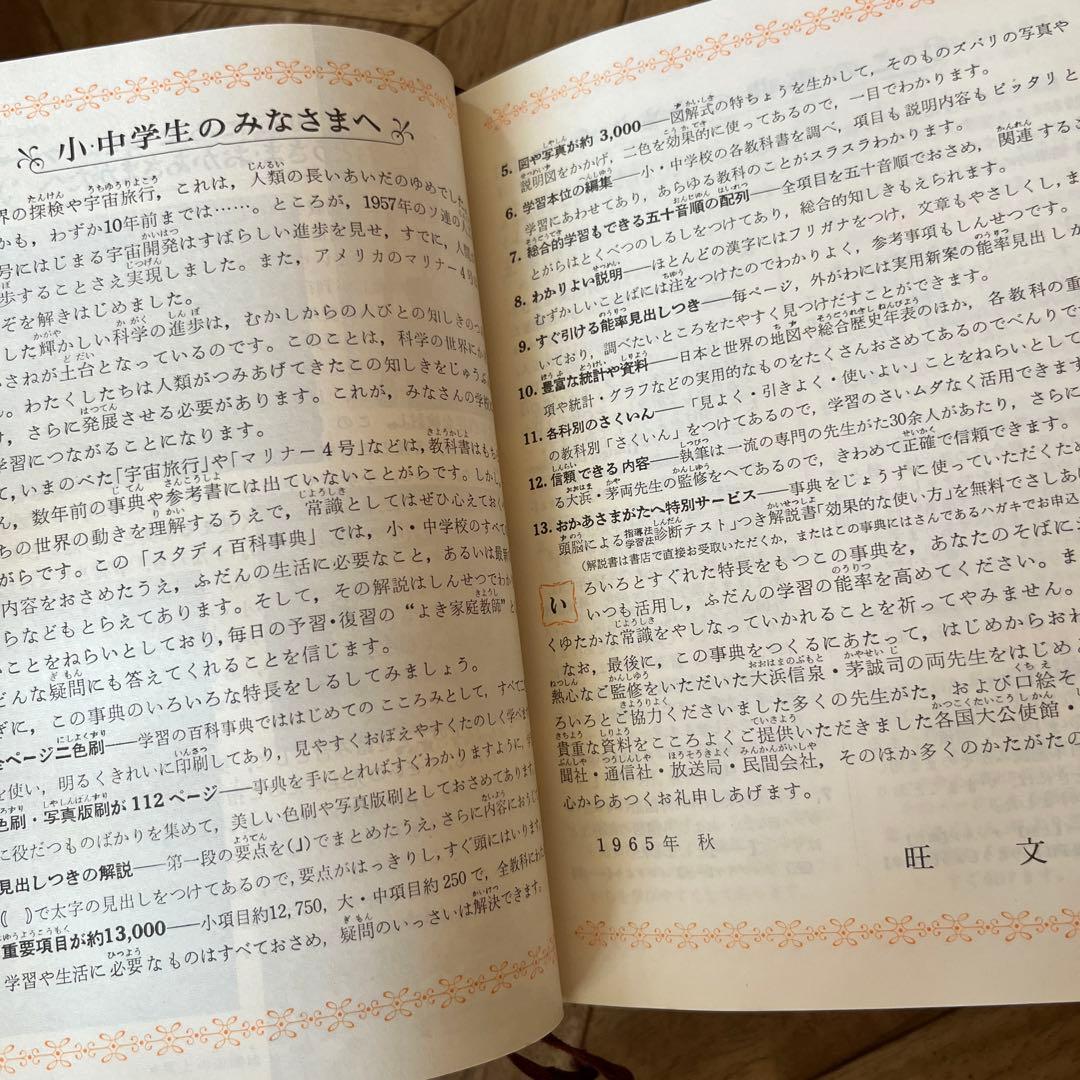 小・中学生のみなさまへ
界の探検や宇宙旅行，これは，人類の長いあいだのゆめでした
かも，わずか10年前までは……。ところが，1957年のソ連の人
号にはじまる宇宙開発はすばらしい進歩を見せ，すでに，人間
歩することさえ実現しました。また，アメリカのマリナー4号は
ぞを解きはじめました。
した輝かしい科学の進歩は，むかしからの人びとの知しきのつ
さねが土台となっているのです。このことは，科学の世界にか
。わたくしたちは人類がつみあげてきたこの知しきをじゅうぶ
け，さらに発展させる必要があります。これが，みなさんの学校
学習につながることになります。
て，いまのべた「宇宙旅行」や「マリナー4号」などは，教科書はもち
ん，数年前の事典や参考書には出ていないことがらです。しかし
ちの世界の動きを理解するうえで，常識としてはぜひ心えておく
がらです。この「スタディ百科事典」では，小・中学校のすべて
内容をおさめたうえ，ふだんの生活に必要なこと，あるいは最新
らなどもとらえてあります。そして，その解説はしんせつでわか
いことをねらいとしており，毎日の予習・復習の“よき家庭教師”と
どんな疑問にも答えてくれることを信じます。
ぎに，この事典のいろいろな特長をしるしてみましょう。
全ページ二色刷——学習の百科事典でははじめてのこころみとして，すべて二
を使い，明るくきれいに印刷してあり，見やすくおぼえやすくたのしく学べま
色刷・写真版刷が112ページ——事典を手にとればすぐわかりますように，学
に役だつものばかりを集めて，美しい色刷や写真版刷としておさめてあります。
見出しつきの解説——第一段の要点を(」)でまとめたうえ，さらに内容におうじ
《 》で太字の見出しをつけてあるので，要点がはっきりし，すぐ頭にはいります。
重要項目が約13,000——小項目約12,750，大・中項目約250で，全教科にわた
学習や生活に必要なものはすべておさめ，疑問のいっさいは解決できます。
5. 図や写真が約3,000——図解式の特ちょうを生かして，そのものズバリの写真や
説明図をかかげ，二色を効果的に使ってあるので，一目でわかります。
6. 学習本位の編集——小・中学校の各教科書を調べ，項目も説明内容もピッタリと
学習にあわせてあり，あらゆる教科のことがスラスラわかります。
7. 総合的学習もできる五十音順の配列——全項目を五十音順でおさめ，関連するこ
とがらはとくべつのしるしをつけてあり，総合的知しきもえられます。
8. わかりよい説明——ほとんどの漢字にはフリガナをつけ，文章もやさしくし，ま
むずかしいことばには注をつけたのでわかりよく，参考事項もしんせつです。
9. すぐ引ける能率見出しつき——毎ページ，外がわには実用新案の能率見出しが
いており，調べたいところをたやすく見つけだすことができます。
10. 豊富な統計や資料——日本と世界の地図や総合歴史年表のほか，各教科の重
項や統計・グラフなどの実用的なものをたくさんおさめてあるのでべんりで
11. 各科別のさくいん——「見よく・引きよく・使いよい」ことをねらいとして
の教科別「さくいん」をつけてあるので，学習のさいムダなく活用できます
12. 信頼できる内容——執筆は一流の専門の先生がた30余人があたり，さらに
る大浜・茅両先生の監修をへてあるので，きわめて正確で信頼できます。
13. おかあさまがたへ特別サービス——事典をじょうずに使っていただくため
頭脳による指導法学習法診断テスト」つき解説書「効果的な使い方」を無料でさしあ
（解説書は書店で直接お受取いただくか，またはこの事典にはさんであるハガキでお申込
いろいろとすぐれた特長をもつこの事典を，あなたのそばに
いつも活用し，ふだんの学習の能率を高めてください。ま
くゆたかな常識をやしなっていかれることを祈ってやみません。
なお，最後に，この事典をつくるにあたって，はじめからおわ
熱心なご監修をいただいた大浜信泉・茅誠司の両先生をはじめ
ろいろとご協力くださいました多くの先生がた，および口絵そ
貴重な資料をこころよくご提供いただきました各国大公使館・
聞社・通信社・放送局・民間会社，そのほか多くのかたがたの
心からあつくお礼申しあげます。
1965年 秋
旺 文